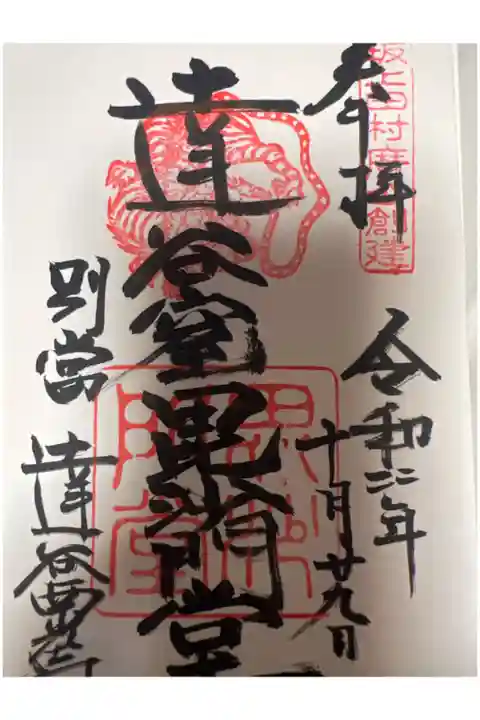 坂上田村麿創建
奉拝
令和 年
十月廿九日
達谷窟毘沙門堂
毘沙門堂
別當
達谷西光